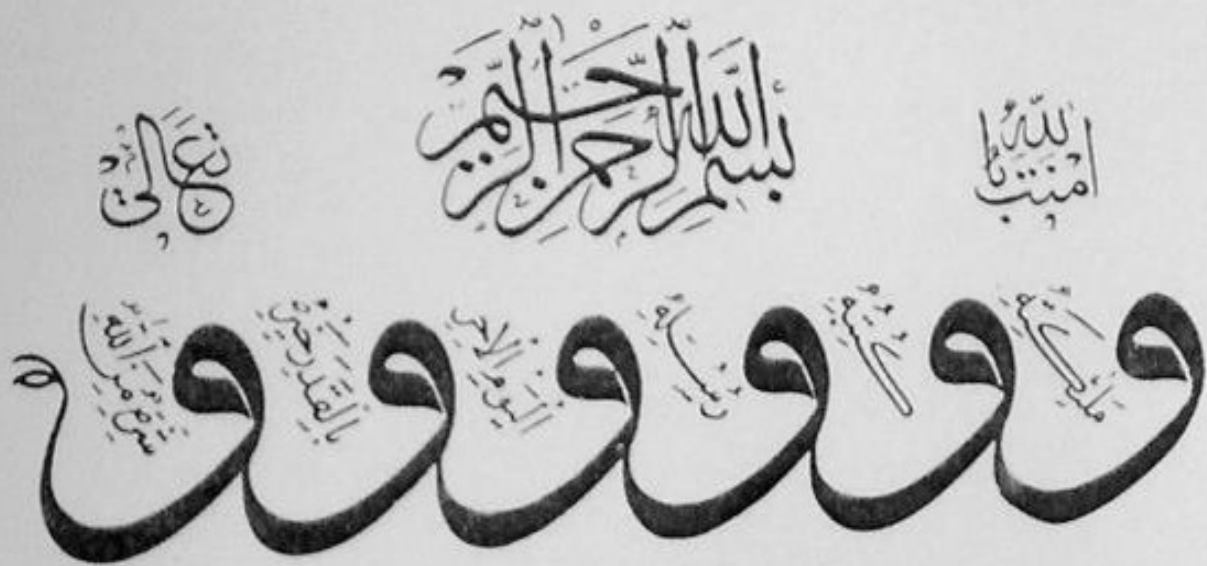 بسم الله الرحمن الرحيم
امنت بالله
وملئكته وكتبه ورسله واليوم الاخر وبالقدر خيره وشره من الله
تعالى